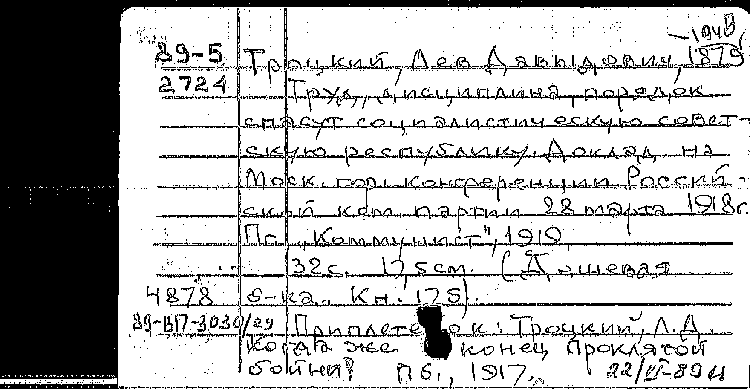 -1940
89-5 Троцкий, Лев Давыдович, 1879
2724 Труд, дисциплина, порядок
спасут социалистическую совет-
скую республику. Доклад на
Моск. гор. конференции Россий-
ской ком. партии 28 марта 1918г.
Пг. „Коммунист", 1919.
32с. 17,5см. (Дешевая
4878 б-ка. Кн. 175).
89-ВП-3030/ Приплетен к: Троцкий, Л.Д.
Когда же конец проклятой
бойни? Пб., 1917.